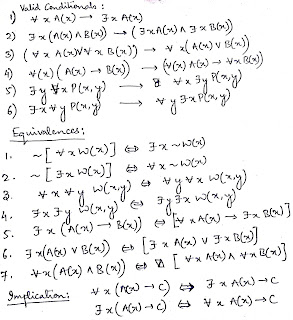 Valid Conditionals :
1) ∀x A(x) → ∃x A(x)
2) ∃x (A(x) ∧ B(x)) → (∃x A(x) ∧ ∃x B(x))
3) (∀x A(x) ∨ ∀x B(x)) → ∀x (A(x) ∨ B(x))
4) ∀(x) (A(x) → B(x)) → (∀(x) A(x) → ∀x B(x))
5) ∃y ∀x P(x,y) → ∀x ∃y P(x,y)
6) ∃x ∀y P(x,y) → ∀y ∃x P(x,y)
Equivalences :
1. ~[∀x W(x)] ⇔ ∃x ~W(x)
2. ~[∃x W(x)] ⇔ ∀x ~W(x)
3. ∀x ∀y W(x,y) ⇔ ∀y ∀x W(x,y)
4. ∃x ∃y W(x,y) ⇔ ∃y ∃x W(x,y)
5. ∃x (A(x) → B(x)) ⇔ [∀x A(x) → ∃x B(x)]
6. ∃x (A(x) ∨ B(x)) ⇔ [∃x A(x) ∨ ∃x B(x)]
7. ∀x (A(x) ∧ B(x)) ⇔ [∀x A(x) ∧ ∀x B(x)]
Implication : ∀x (A(x) → C) ⇔ ∃x A(x) → C
∃x (A(x) → C) ⇔ ∀x A(x) → C